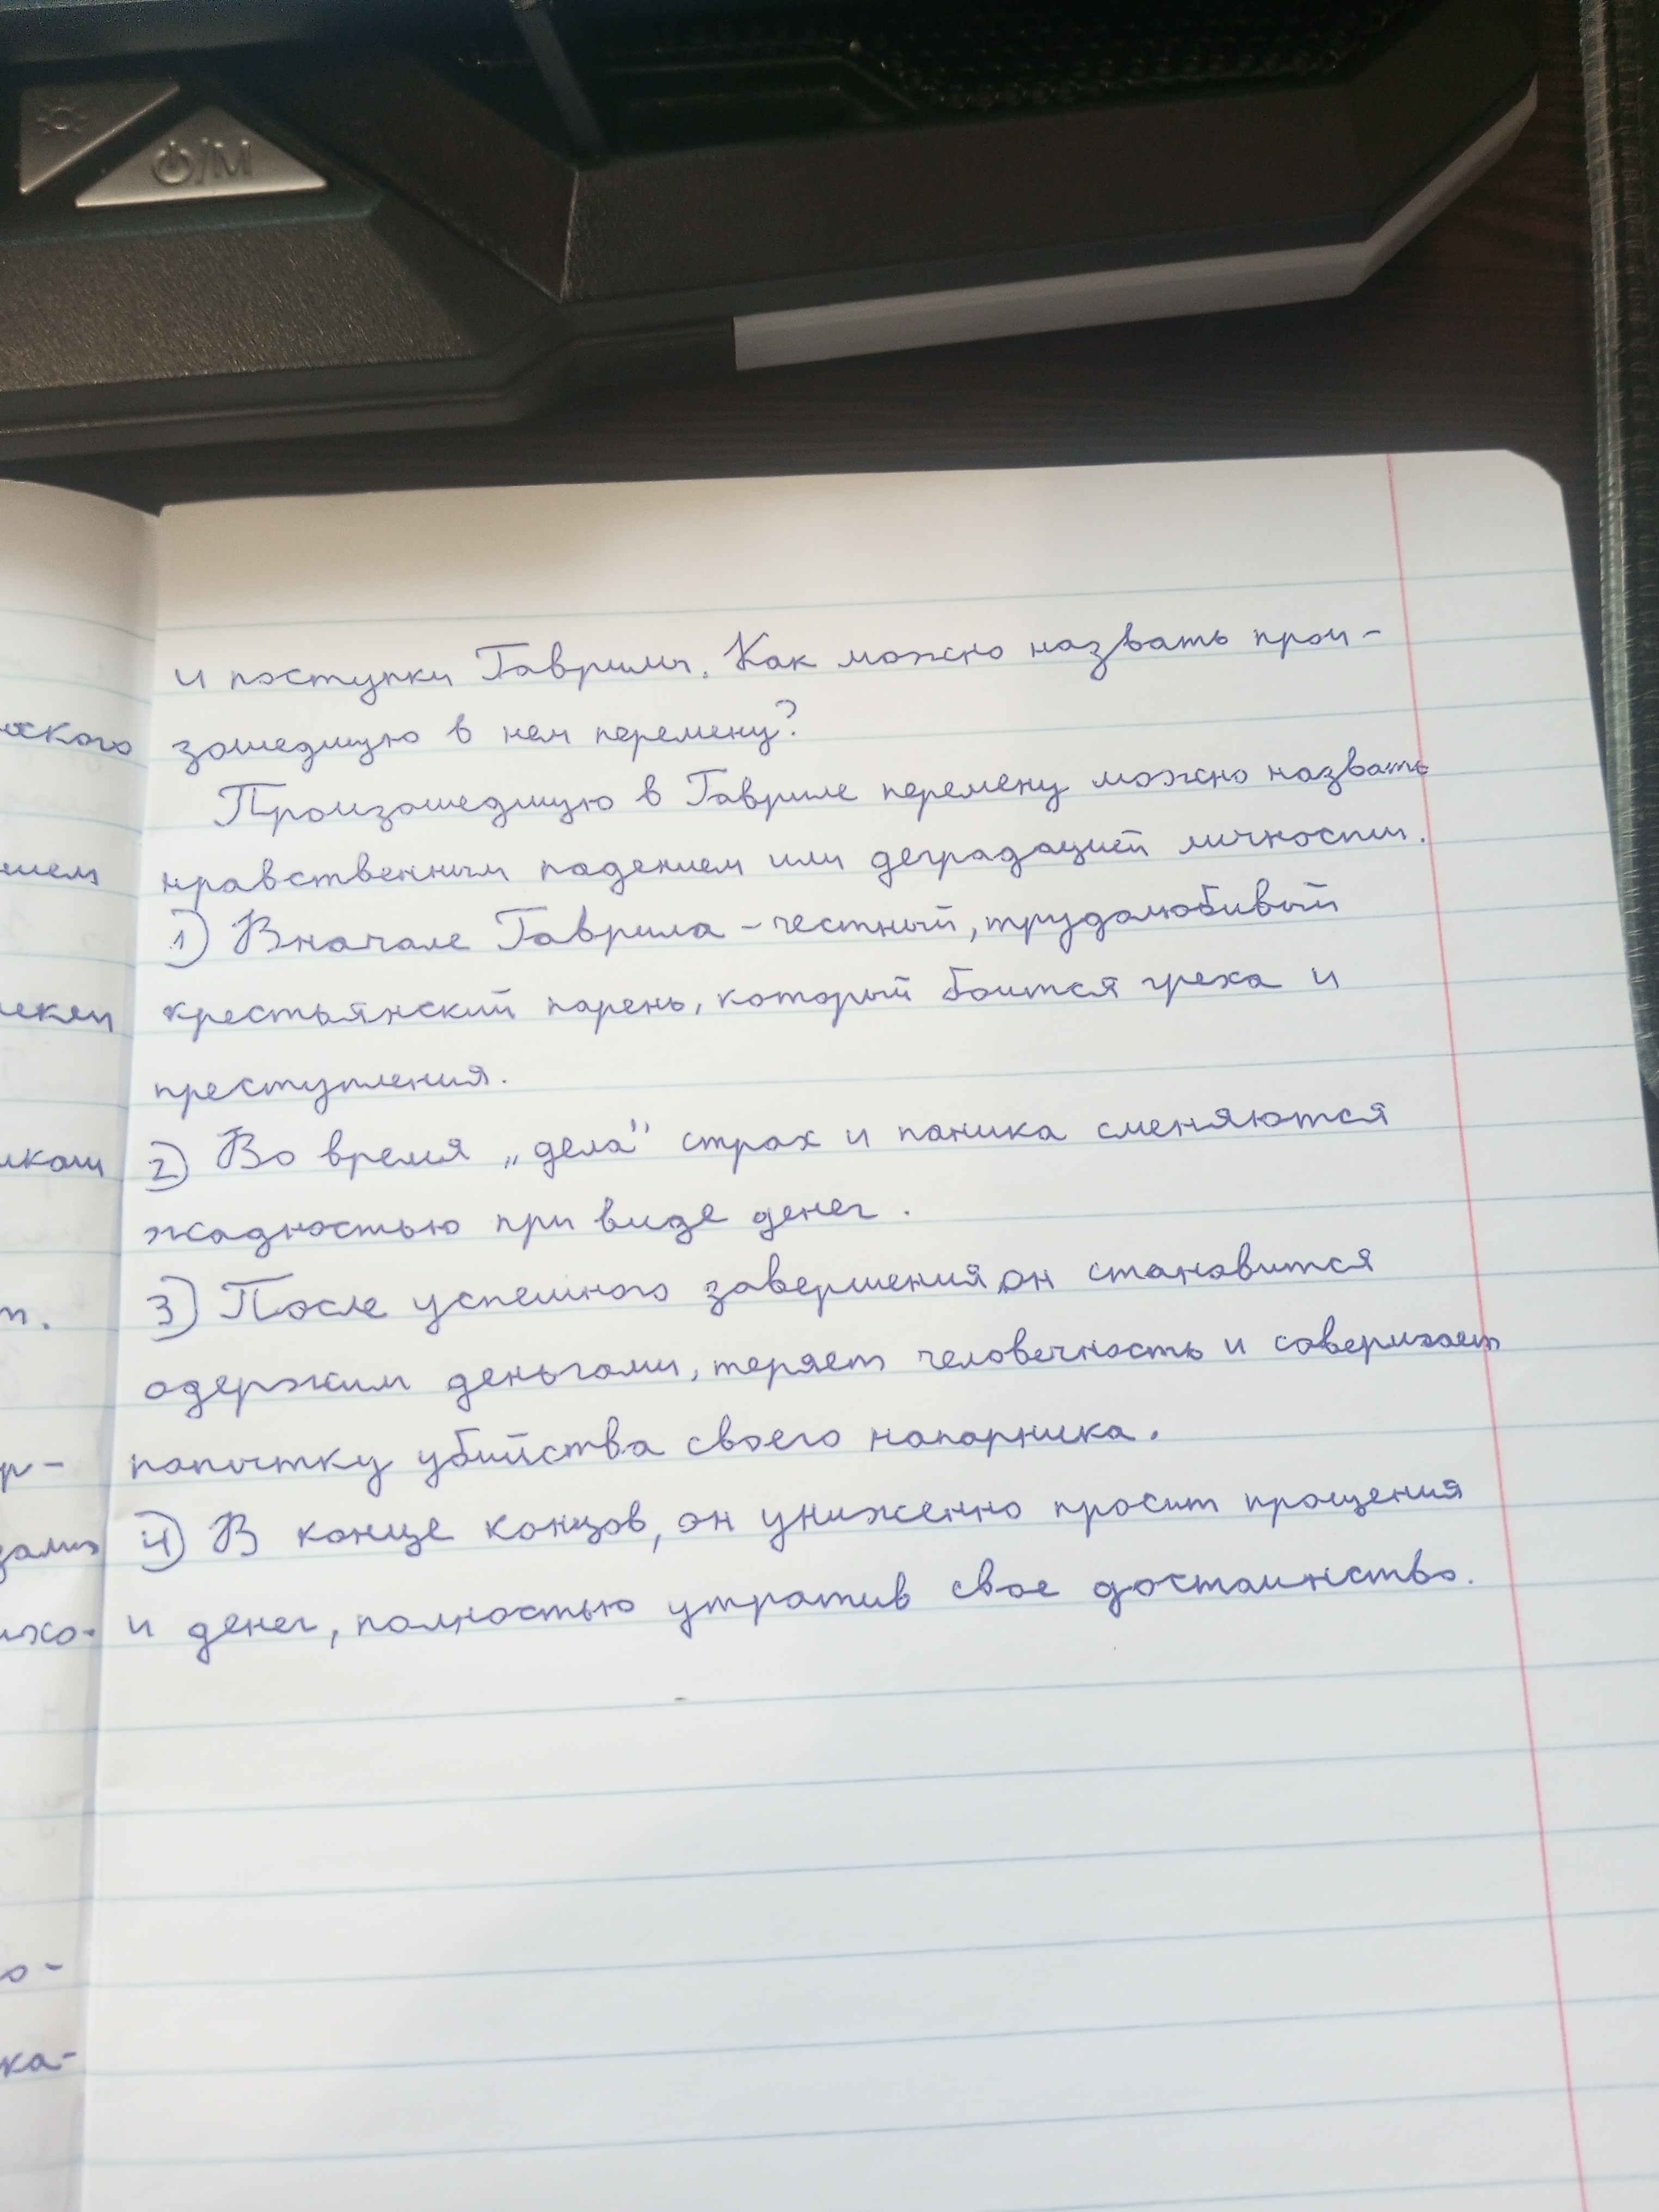 ⏻/M
и поступки Гаврилы. Как можно назвать прои-
зошедшую в нем перемену?
Произошедшую в Гавриле перемену можно назвать
нравственным падением или деградацией личности.
1) Вначале Гаврила - честный, трудолюбивый
крестьянский парень, который боится греха и
преступления.
2) Во время „дела" страх и паника сменяются
жадностью при виде денег.
3) После успешного завершения, он становится
одержим деньгами, теряет человечность и совершает
попытку убийства своего напарника.
4) В конце концов, он униженно просит прощения
и денег, полностью утратив свое достоинство.